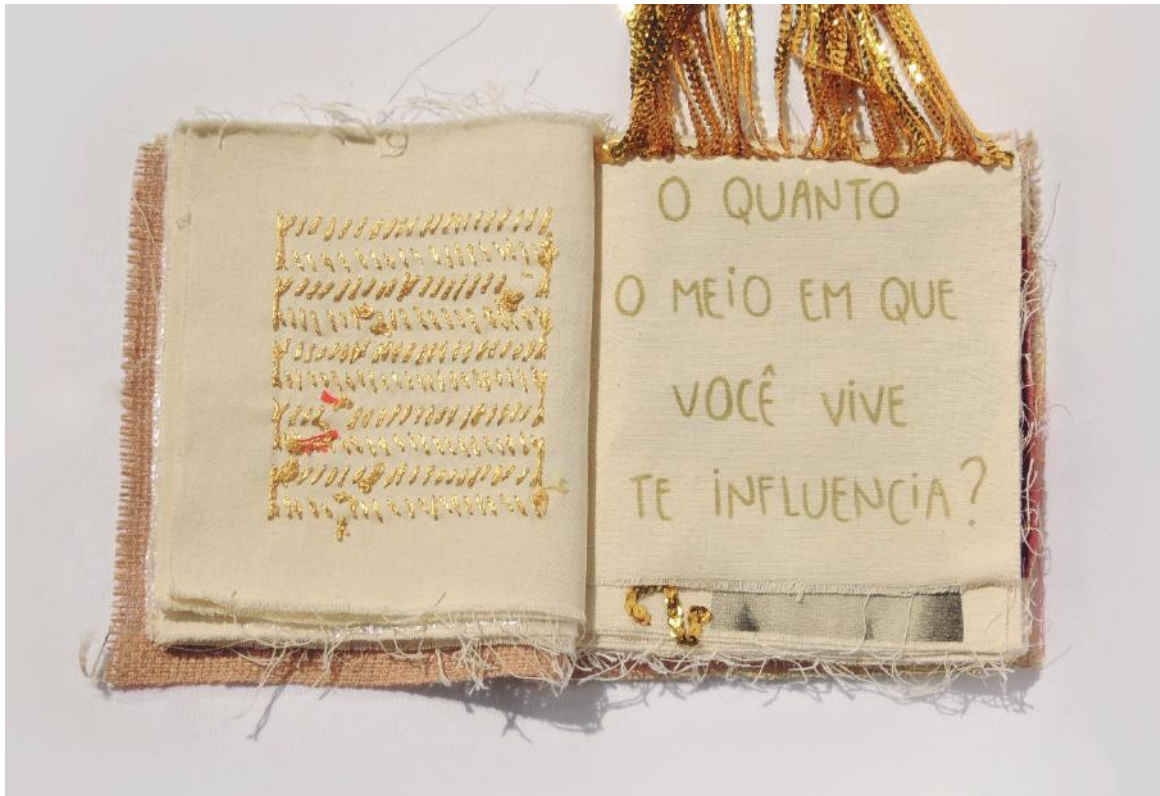 O QUANTO
O MEIO EM QUE
VOCÊ VIVE
TE INFLUENCIA?